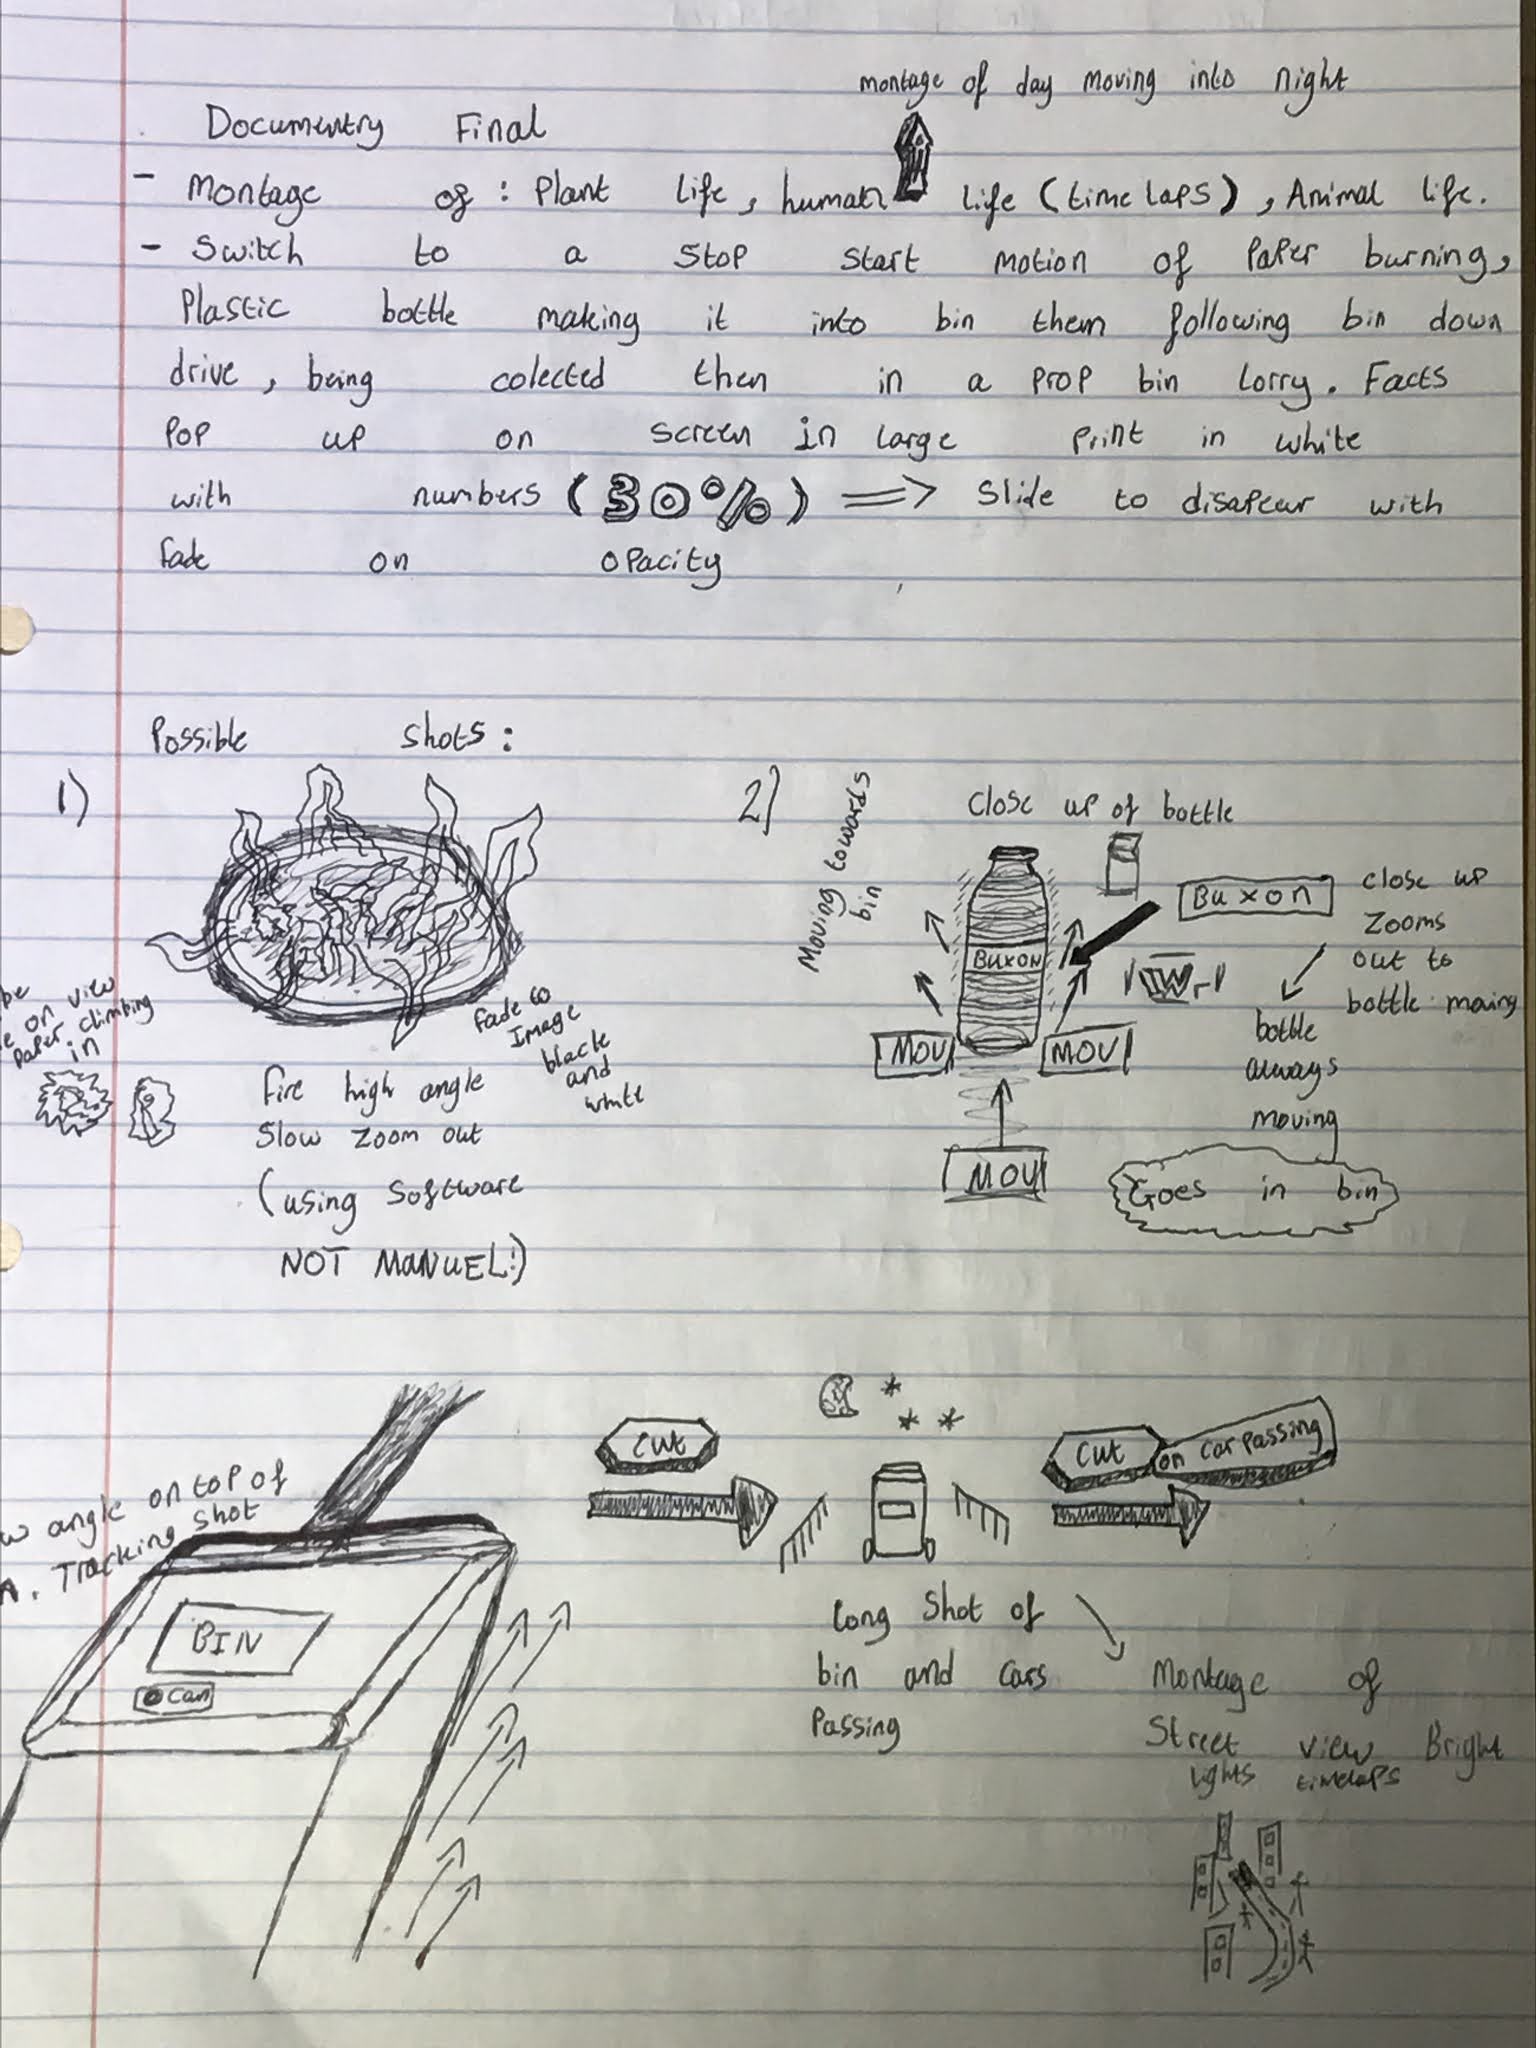 montage of day moving into night
Documentry Final
- Montage of: Plant life, human life (time laps), Animal life.
- Switch to a stop start motion of Paper burning,
Plastic bottle making it into bin them following bin down
drive, being colected then in a prop bin lorry. Facts
Pop up on screen in large print in white
with numbers (30%) => Slide to disapear with
fade on opacity
Possible shots:
1)
on view
Paper climbing
in
fade to
Image
black
and
white
Fire high angle
Slow zoom out
(using software
NOT MANUEL!)
2)
Moving towards
bin
Close up of bottle
BUXON
BUXON
close up
zooms
out to
bottle moving
bottle
always
moving
MOV
MOV
MOV
Goes in bin
angle on top of
Tracking shot
BIN
Can
Cut
Cut on car passing
Long shot of
bin and cars
Passing
Montage of
Street view Bright
lights timelaps